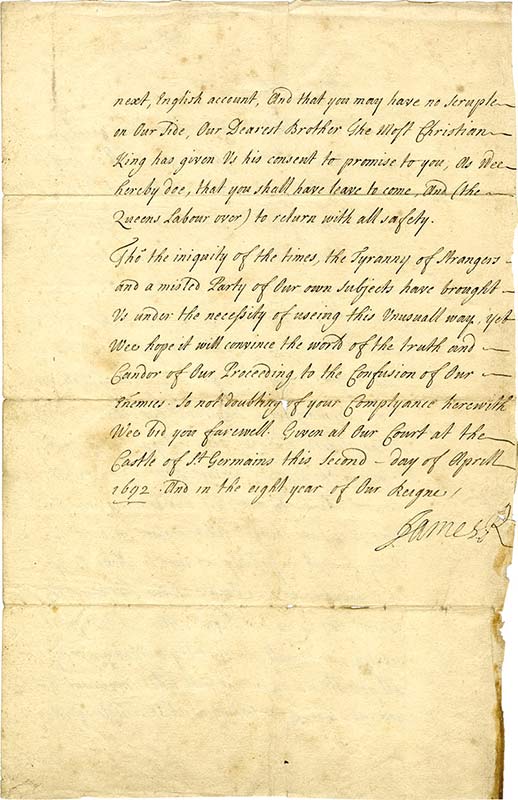 next, English account, And that you may have no scruple
on Our Side, Our Dearest Brother The Most Christian
King has given Us his consent to promise to you, As Wee
hereby doe, that you shall have leave to come, And (the
Queens Labour over) to return with all safety.
Tho' the iniquity of the times, the Tyranny of Strangers
and a misled Party of Our own Subjects have brought
Us under the necessity of useing this Unusuall way, yet
Wee hope it will convince the world of the truth and
Candor of Our Proceeding to the Confusion of Our
Enemies. So not doubting of your Complyance herewith
Wee bid you farewell. Given at Our Court at the
Castle of St. Germains this second day of Aprill
1692. And in the eight year of Our Reigne /
James R